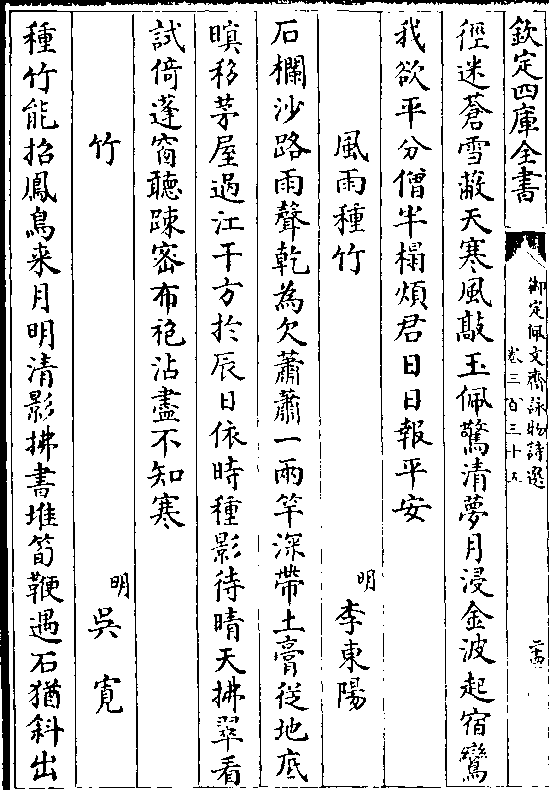 欽定四庫全書
御定佩文齋詠物詩選
卷三百三十五
徑迷蒼雪蔽天寒風敲玉佩驚清夢月浸金波起宿鸞
我欲平分僧半榻煩君日日報平安
風雨種竹 明 李東陽
石欄沙路雨聲乾為欠蕭蕭一兩竿深帶土膏從地底
暝移茅屋過江干方於辰日依時種影待晴天拂翠看
試倚蓬窗聽疎密布袍沾盡不知寒
竹 明 吳寬
種竹能招鳳鳥来月明清影拂書堆筍鞭遇石猶斜出